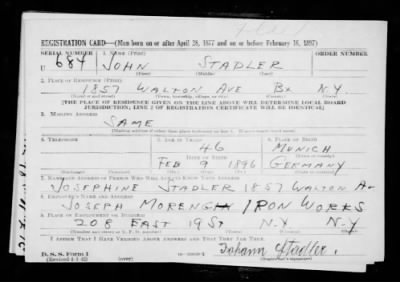 REGISTRATION CARD—(Men born on or after April 28, 1877 and on or before February 16, 1897)
SERIAL NUMBER 1. NAME (Print) ORDER NUMBER
U 684 JOHN STADLER
(First) (Middle) (Last)
2. PLACE OF RESIDENCE (Print)
1857 WALTON AVE BX N.Y.
(Number and street) (Town, township, village, or city) (County) (State)
[THE PLACE OF RESIDENCE GIVEN ON THE LINE ABOVE WILL DETERMINE LOCAL BOARD
JURISDICTION; LINE 2 OF REGISTRATION CERTIFICATE WILL BE IDENTICAL]
3. MAILING ADDRESS
SAME
[Mailing address if other than place indicated on line 2. If same insert word same]
4. TELEPHONE 5. AGE IN YEARS 6. PLACE OF BIRTH
46 MUNICH
DATE OF BIRTH
FEB 9 1896 GERMANY
7. NAME AND ADDRESS OF PERSON WHO WILL ALWAYS KNOW YOUR ADDRESS
JOSEPHINE STADLER 1857 WALTON A-
8. EMPLOYER'S NAME AND ADDRESS
JOSEPH MORENGH IRON WORKS
9. PLACE OF EMPLOYMENT OR BUSINESS
208 EAST 19 St N.Y. N.Y.
(Number and street or R. F. D. number) (Town) (County) (State)
I AFFIRM THAT I HAVE VERIFIED ABOVE ANSWERS AND THAT THEY ARE TRUE.
D. S. S. Form 1 Johann Stadler.
(Revised 4-1-42)